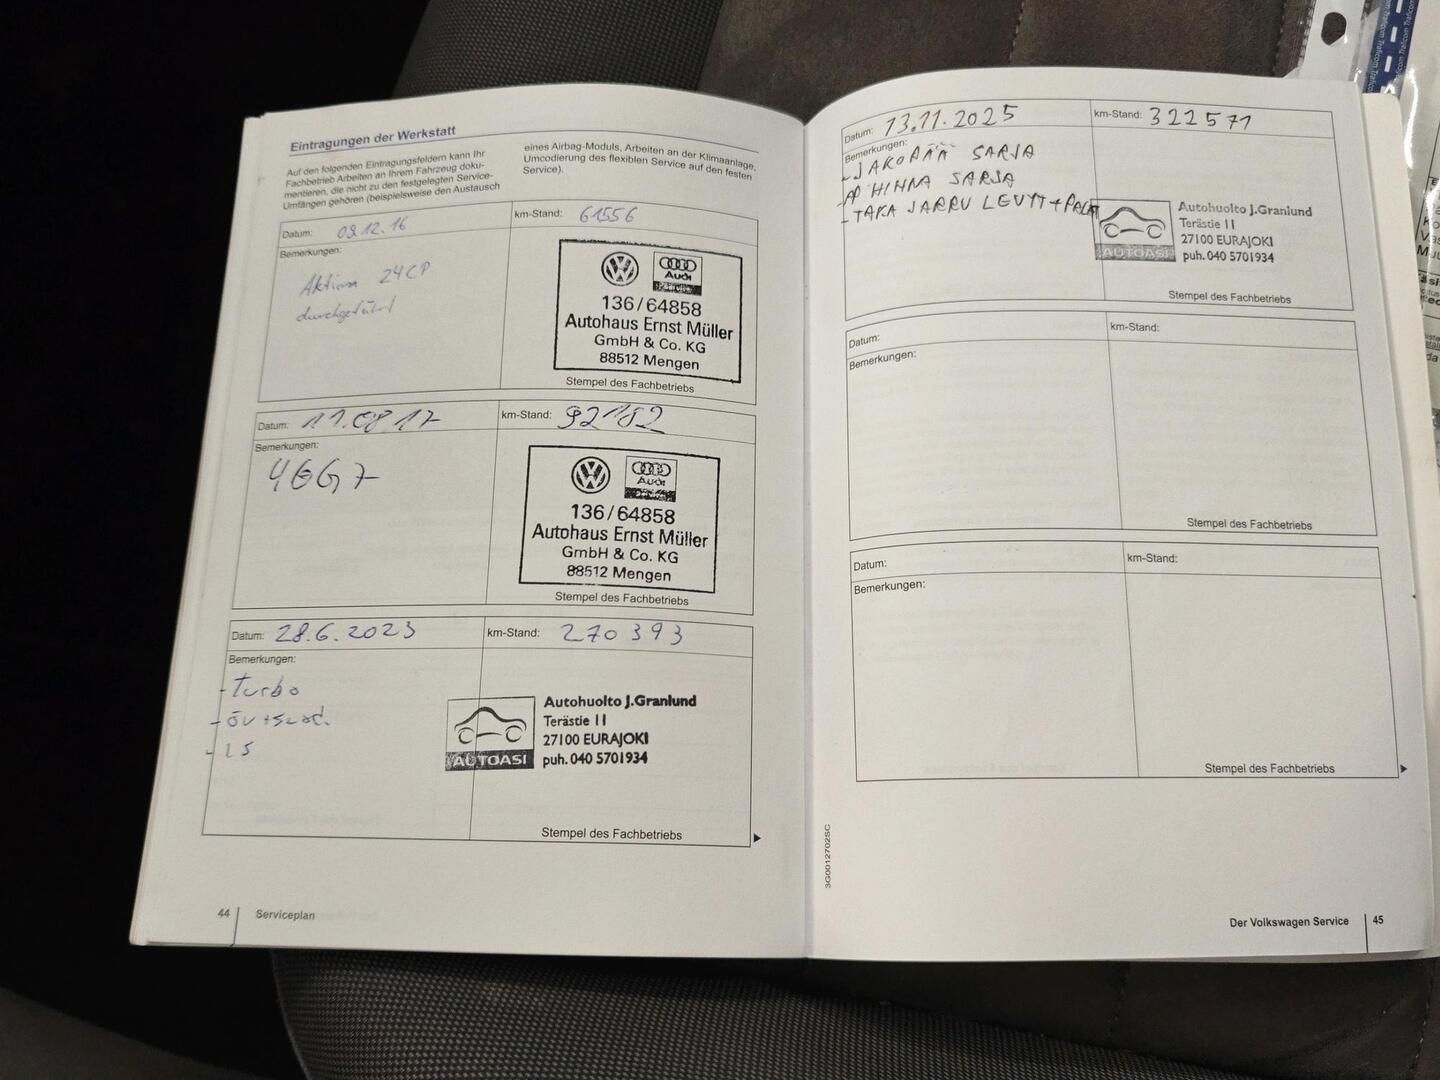 Eintragungen der Werkstatt
Auf den folgenden Eintragungsfeldern kann Ihr
Fachbetrieb Arbeiten an Ihrem Fahrzeug doku-
mentieren, die nicht zu den festgelegten Service-
Umfängen gehören (beispielsweise den Austausch
eines Airbag-Moduls, Arbeiten an der Klimaanlage,
Umcodierung des flexiblen Service auf den festen
Service).
Datum: 09.12.16
km-Stand: 61556
Bemerkungen:
Aktion 24CP
durchgeführt
Audi
Service
136/64858
Autohaus Ernst Müller
GmbH & Co. KG
88512 Mengen
Stempel des Fachbetriebs
Datum: 11.08.17
km-Stand: 92182
Bemerkungen:
4GG7
Audi
136/64858
Autohaus Ernst Müller
GmbH & Co. KG
88512 Mengen
Stempel des Fachbetriebs
Datum: 28.6.2023
km-Stand: 270393
Bemerkungen:
-Turbo
-öv+suod.
AUTOASI
Autohuolto J.Granlund
Terästie 11
27100 EURAJOKI
puh. 040 5701934
Stempel des Fachbetriebs
44
Serviceplan
Datum: 13.11.2025
km-Stand: 322571
Bemerkungen:
-JAKOPÄÄ SARJA
-AP HIHNA SARJA
-TAKA JARRU LEVYT+PALAT
AUTOASI
Autohuolto J.Granlund
Terästie 11
27100 EURAJOKI
puh. 040 5701934
Stempel des Fachbetriebs
Datum:
km-Stand:
Bemerkungen:
Stempel des Fachbetriebs
Datum:
km-Stand:
Bemerkungen:
Stempel des Fachbetriebs
3G0012702SC
Der Volkswagen Service
45
Traficom Traficom Traficom